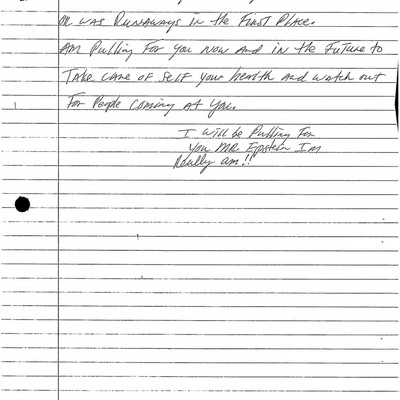 or was Runaways in the First Place.
Am Pulling For you now and in the Future to
Take care of Self your health and watch out
For People coming at You.
I will be Pulling For
You MR. Epstein I'm
Really am!!